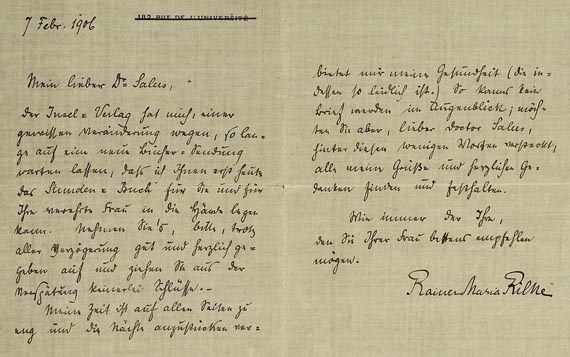 7 Febr. 1906
182 RUE DE L'UNIVERSITÉ
Mein lieber Dr Salus,
der Insel=Verlag hat mich, einer
gewissen Veränderung wegen, so lan-
ge auf eine neue Bücher=Sendung
warten lassen, dass ich Ihnen erst heute
das Stunden=Buch für Sie und für
Ihre verehrte Frau in die Hände legen
kann. Nehmen Sie's, bitte, trotz
aller Verzögerung gut und herzlich ge-
geben auf und ziehen Sie aus der
Verspätung keinerlei Schlüsse.-
Meine Zeit ist auf allen Seiten zu
eng und die Nächte anzustücken ver-
bietet mir meine Gesundheit (die in-
dessen so leidlich ist.) So kanns kein
Brief werden im Augenblick; möch-
ten Sie aber, lieber Doctor Salus,
hinter diesen wenigen Worten versteckt,
alle meine Grüße und herzlichen Ge-
danken finden und festhalten.
Wie immer der Ihre,
den Sie Ihrer Frau bestens empfehlen
mögen.
Rainer Maria Rilke